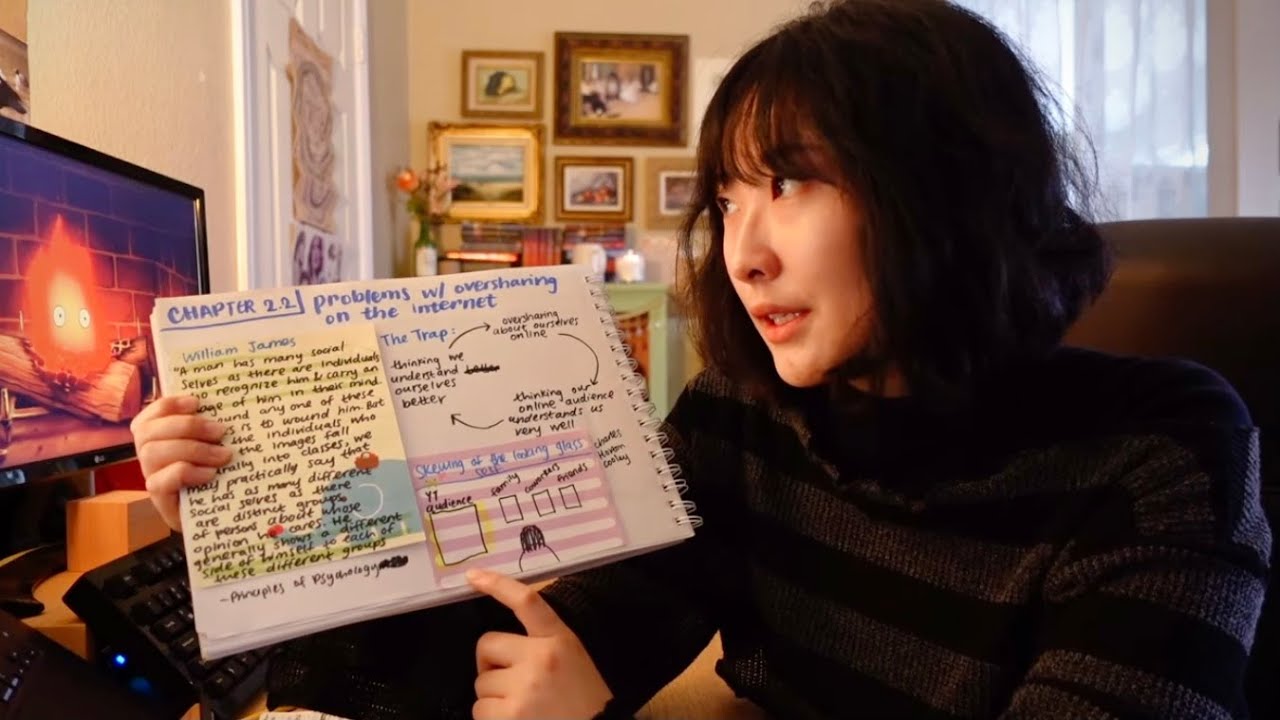 CHAPTER 2.2 problems w/ oversharing
on the internet
William James
"A man has many social
selves as there are individuals
who recognize him & carry an
of him in their mind.
any one of these
is to wound him. But
the individuals who
the images fall
into classes, we
may practically say that
he has as many different
social selves as there
are distinct groups
of persons about whose
opinion he cares. He
generally shows a different
side of himself to each of
these different groups
- Principles of Psychology
The Trap:
oversharing
about ourselves
online
thinking our
online audience
understands us
very well
thinking we
understand better
ourselves
better
Skewing of the looking glass
self
Charles
Horton
Cooley
YT
audience
family
coworkers
friends
LG